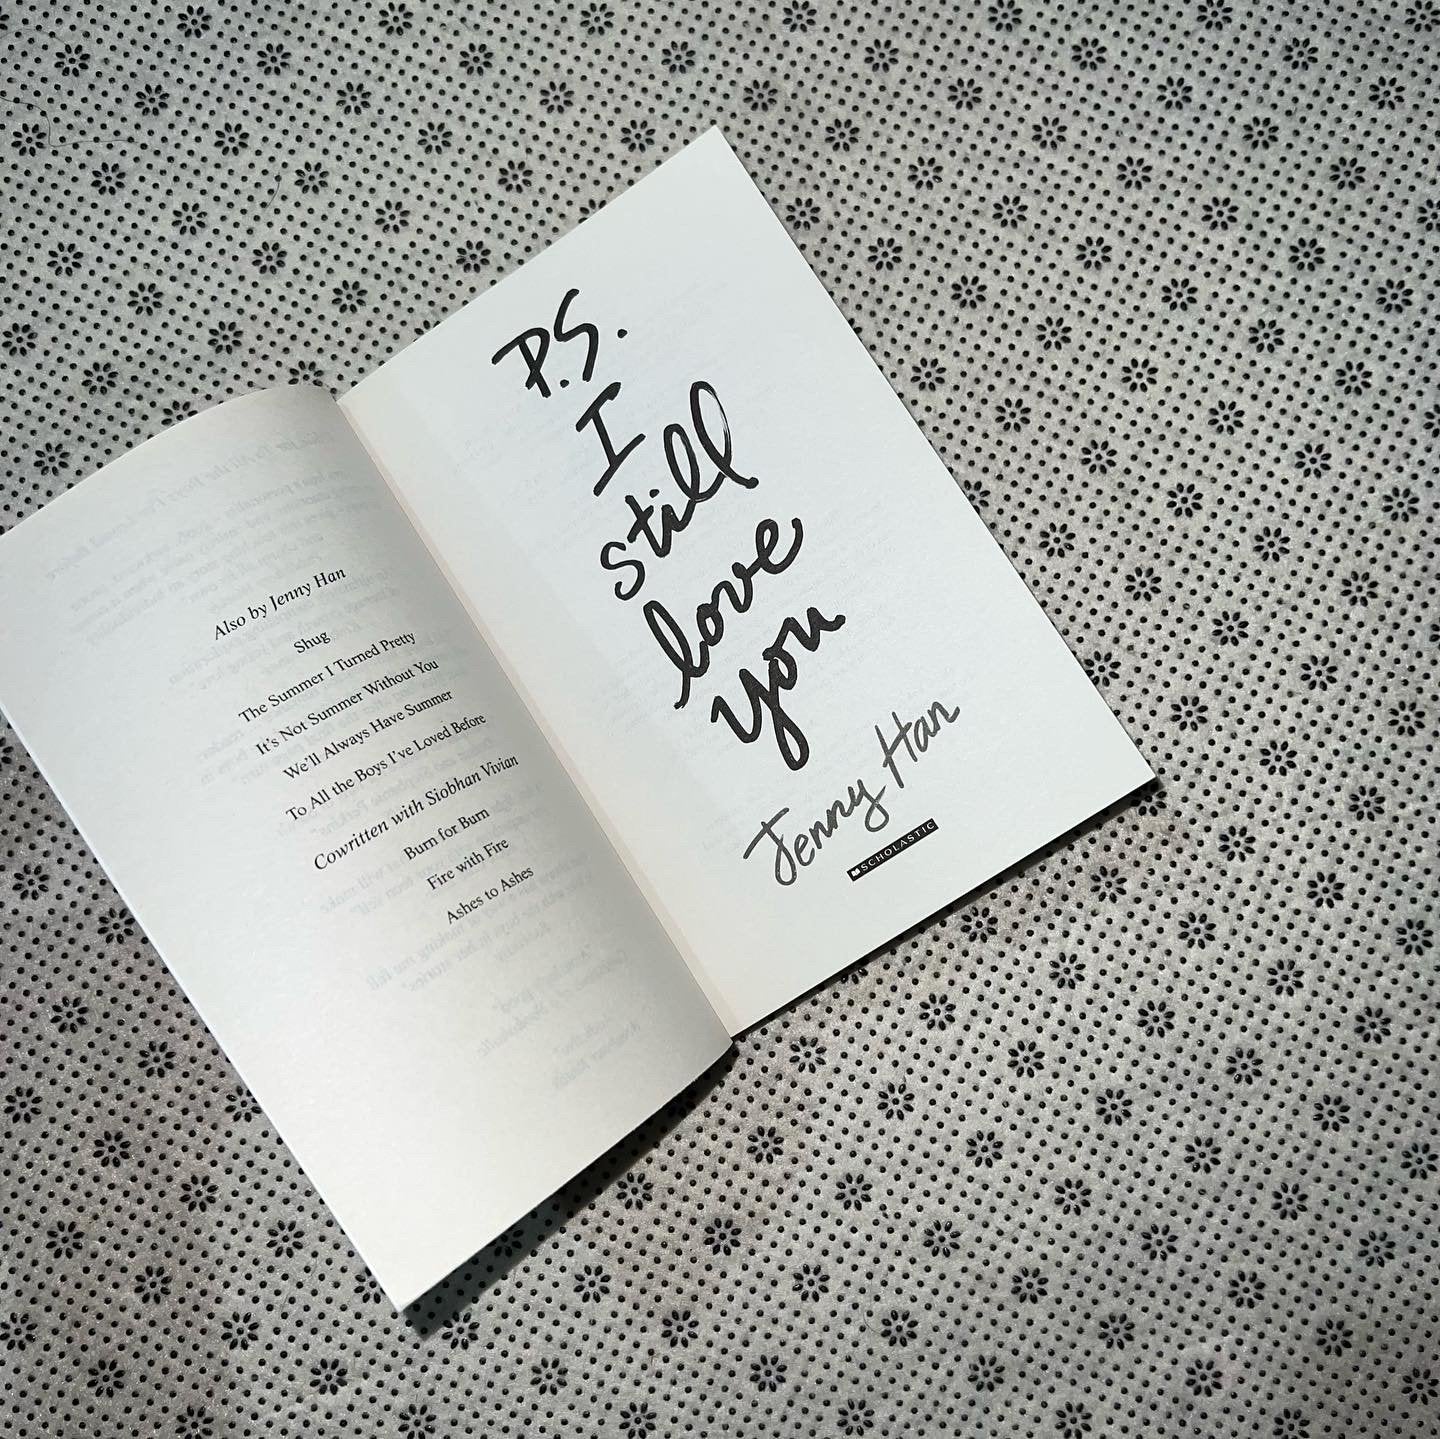 Also by Jenny Han
Shug
The Summer I Turned Pretty
It's Not Summer Without You
We'll Always Have Summer
To All the Boys I've Loved Before
Cowritten with Siobhan Vivian
Burn for Burn
Fire with Fire
Ashes to Ashes
P.S.
I
still
love
you
Jenny Han
SCHOLASTIC